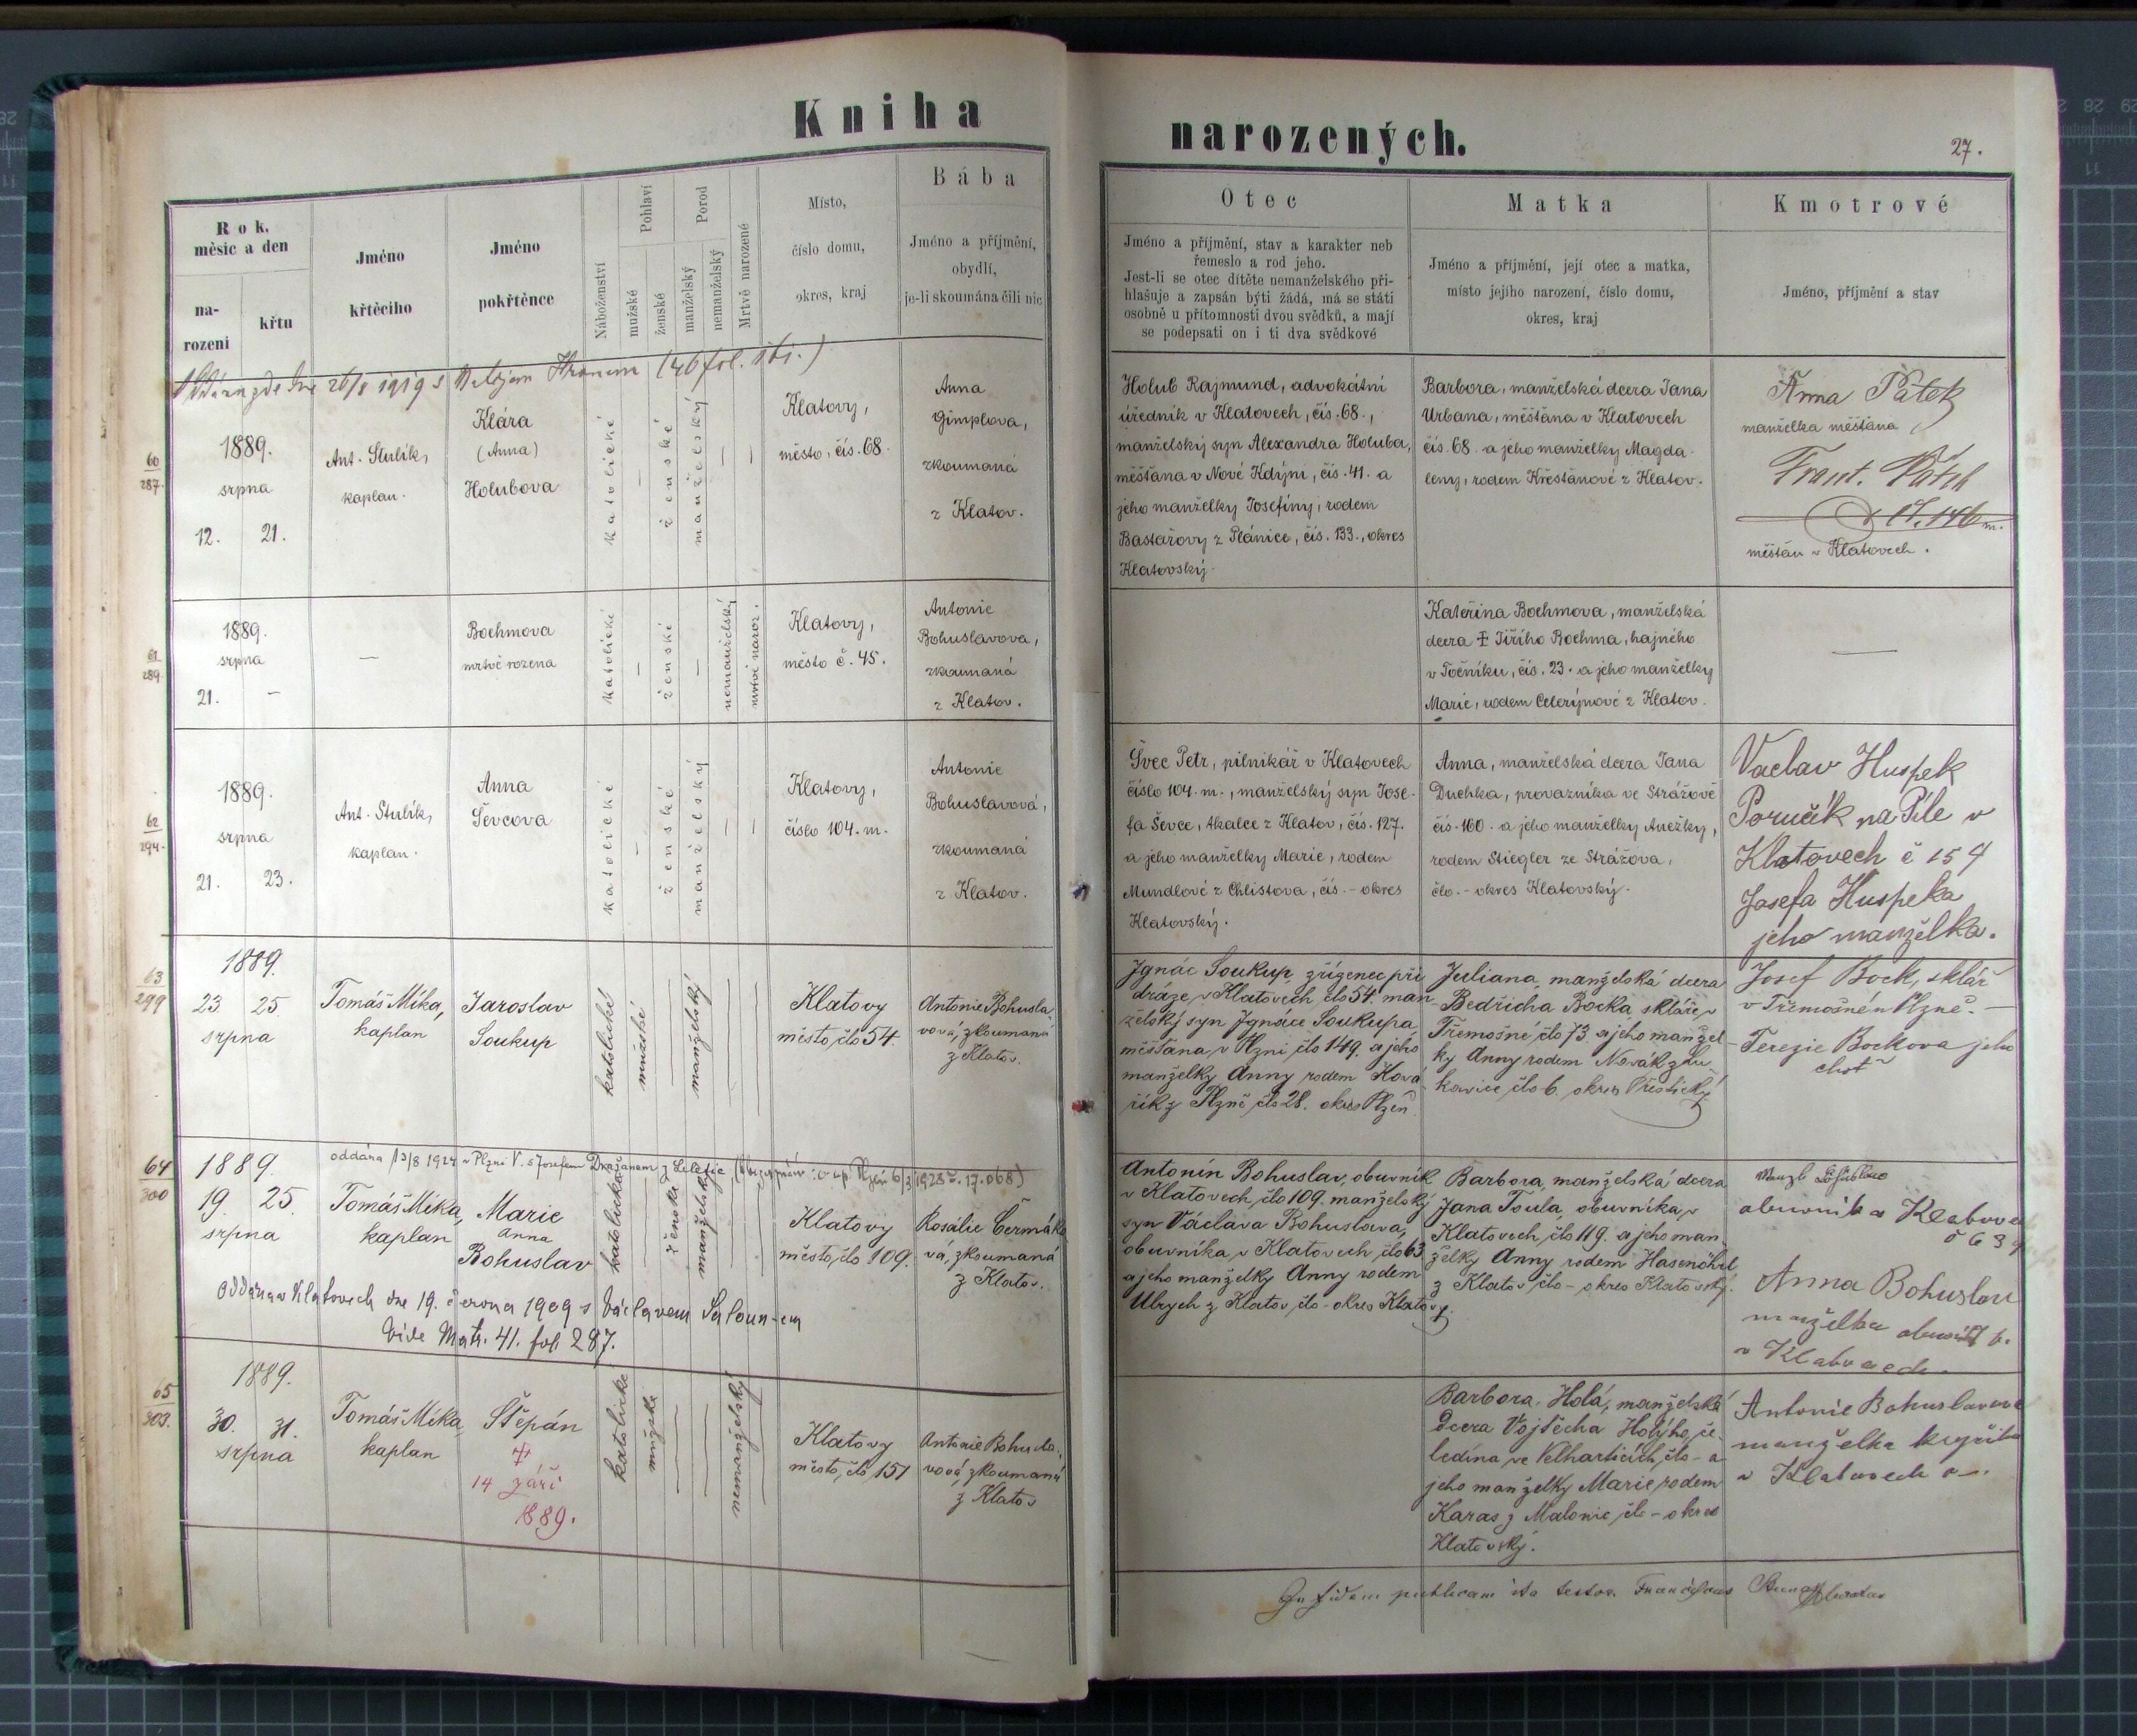 Kniha
narozených.
27.
Rok,
měsíc a den
na-
rozeni
křtu
Jméno
křtěcího
Jméno
pokřtěnce
Náboženství
Pohlaví
mužské
ženské
Porod
manželský
nemanželský
Mrtvě narozené
Místo,
číslo domu,
okres, kraj
Bába
Jméno a příjmění,
obydlí,
je-li skoumána čili nic
Otec
Jméno a příjmění, stav a karakter neb
řemeslo a rod jeho.
Jest-li se otec dítěte nemanželského při-
hlašuje a zapsán býti žádá, má se státi
osobně u přítomnosti dvou svědků, a mají
se podepsati on i ti dva svědkové
Matka
Jméno a příjmění, její otec a matka,
místo jejího narození, číslo domu,
okres, kraj
Kmotrové
Jméno, příjmění a stav
60
287.
1889.
srpna
12. 21.
Ant. Stulík,
kaplan.
Klára
(Anna)
Holubova
katolické
—
ženské
manželský
—
—
Klatovy,
město, čís. 68.
Anna
Gimplova,
zkoumaná
z Klatov.
Holub Rajmund, advokátní
úředník v Klatovech, čís. 68.,
manželský syn Alexandra Holuba,
měšťana v Nové Kdýni, čís. 41. a
jeho manželky Josefíny, rodem
Bastařovy z Plánice, čís. 133., okres
Klatovský.
Barbora, manželská dcera Jana
Urbana, měšťana v Klatovech
čís. 68. a jeho manželky Magda-
leny, rodem Křesťánové z Klatov.
Anna Pátek
manželka měšťana
Frant. Pátek
čí. 146 m.
měšťan v Klatovech.
61
289.
1889.
srpna
21. –
—
Boehmova
mrtvě rozena
katolické
—
ženské
—
nemanželský
mrtvě naroz.
Klatovy,
město č. 45.
Antonie
Bohuslavova,
zkoumaná
z Klatov.
Kateřina Boehmova, manželská
dcera ‡ Jiřího Boehma, hajného
v Točníku, čís. 23. a jeho manželky
Marie, rodem Celerýnové z Klatov.
—
62
294.
1889.
srpna
21. 23.
Ant. Stulík,
kaplan.
Anna
Ševcova
katolické
—
ženské
manželský
—
—
Klatovy,
číslo 104. m.
Antonie
Bohuslavová,
zkoumaná
z Klatov.
Švec Petr, pilnikář v Klatovech
číslo 104. m., manželský syn Jose-
fa Ševce, tkalce z Klatov, čís. 127.
a jeho manželky Marie, rodem
Mundlové z Chlistova, čís. – okres
Klatovský.
Anna, manželská dcera Jana
Duchka, provazníka ve Strážově
čís. 160. a jeho manželky Anežky,
rodem Stiegler ze Strážova,
člo. – okres Klatovský.
Vaclav Huspek
Poručík na Píle v
Klatovech č 154
Josefa Huspeka
jeho manželka.
63
299
1889.
23. 25.
srpna
Tomáš Míka,
kaplan
Jaroslav
Soukup
katolické
mužské
manželský
Klatovy
město, člo 54.
Antonie Bohusla
vová, zkoumaná
z Klatov.
Ignác Soukup, zřízenec při
dráze, v Klatovech, člo 54. man-
želský syn Ignáce Soukupa,
měšťana v Plzni člo 149. a jeho
manželky Anny rodem Ková-
řík z Plzně, člo 28. okres Plzeň.
Juliana, manželská dcera
Bedřicha Bocka, skláře, v
Třemošné člo 73. a jeho manžel-
ky Anny rodem Novák z Lu-
kavice, člo 6. okres Přeštický
Josef Bock, sklář
v Třemošné n Plzně. —
Terezie Bockova jeho
choť
64
300
oddána 13/8 1924 v Plzni V. s Josefem
1889.
19. 25.
srpna
Tomáš Míka,
kaplan
Marie
Anna
Bohuslav
katolické
ženské
manželský
Klatovy
město, člo 109.
Rosálie Čermáko
vá, zkoumaná
z Klatov.
Oddána v Klatovech dne 19. června 1909 s Václavem Šaloun-em
Vide Matr. 41. fol 287.
Antonín Bohuslav, obuvník
v Klatovech, člo 109. manželský
syn Václava Bohuslava,
obuvníka, v Klatovech, člo 63
a jeho manželky Anny rodem
Ulrych z Klatov, člo – okres Klatovy.
Barbora, manželská dcera
Jana Toula, obuvníka, v
Klatovech, člo 119. a jeho man-
želky Anny rodem Hasenöhrl
z Klatov člo – okres Klatovský.
obuvník v Klatovech
Anna Bohuslav
manželka
v Klatovech
65
303.
1889.
30. 31.
srpna
Tomáš Míka,
kaplan
Štěpán
‡
14 září
1889.
katolické
mužské
nemanželský
Klatovy
město, člo 151
Antonie Bohusla
vová, zkoumaná
z Klatov
Barbora Holá, manželská
dcera Vojtěcha Holýho, če-
ledína, ve Velharticích, člo – a
jeho manželky Marie, rodem
Karas z Malonic, člo – okres
Klatovský.
Antonie Bohuslavova
manželka krejčího
v Klatovech
In fidem publicam ita testor. Franciscus